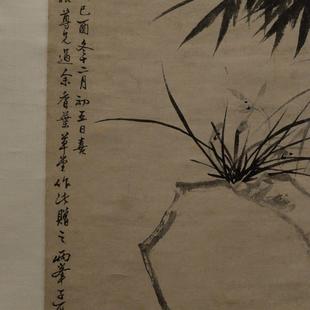 己酉冬十二月初五日喜
尊兄過余香葉草堂作此贈之兩峯子